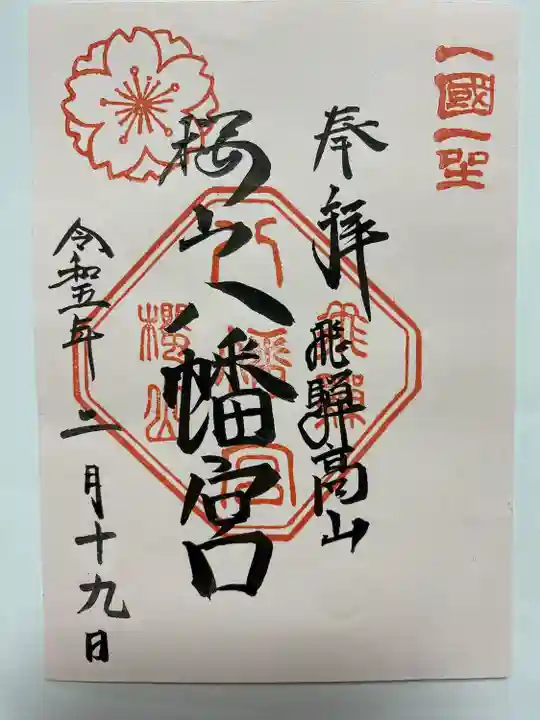 一國一聖
奉拝
飛騨高山
桜山八幡宮
飛騨
八幡宮
櫻山
令和五年二月十九日